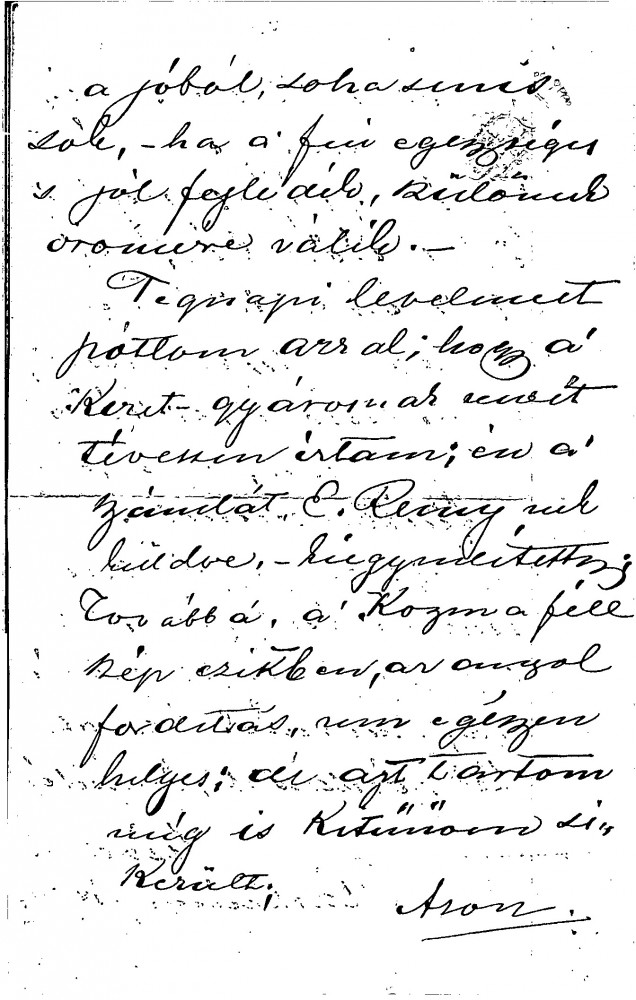 a jóból, soha sem is
sok, – ha a' fiu egezséges
s jól fejlődik, különös
örömére válik. –
Tegnapi levelemet
pótlom azzal; hogy a'
Keret-gyárosnak nevét
tévesen írtam; én a'
számlát, E. Remy nek
küldve, – kiegyenlítettem;
Továbbá, a' Kozma féle
kép czikben, az angol
fordítás, nem egészen
helyes; de azt tartom
még is Kitünöen si„
került;
Aron.